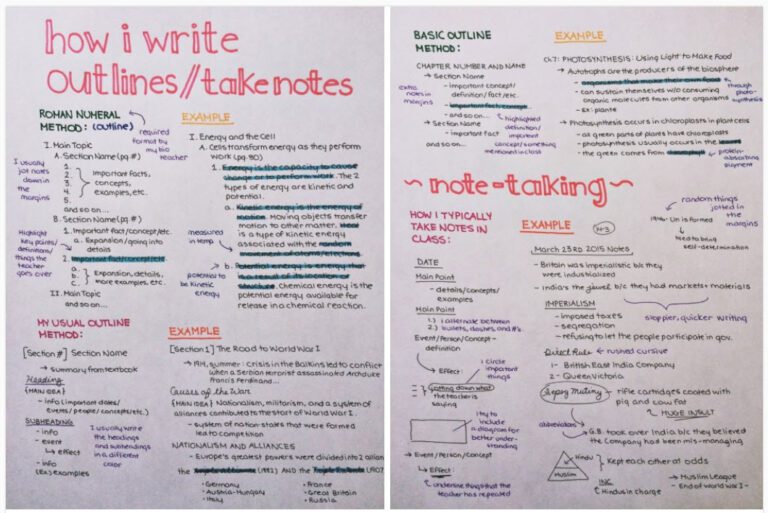 how i write
outlines//take notes
ROMAN NUMERAL
METHOD: (outline)
required
format by
my bio
teacher
I. Main Topic
A. Section Name (pg #)
1.
2.
3.
4.
5.
Important facts,
concepts,
examples, etc.
and so on...
I usually
jot notes
down in
the
margins
B. Section Name (pg #)
1. Important fact/concept/etc.
a. Expansion/going into
details
2. Important fact/concept/etc
a.
b.
c.
Expansion, details,
more examples, etc.
II. Main Topic
and so on...
Highlight
key points/
definitions/
things the
teacher
goes over
EXAMPLE
I. Energy and the Cell
A. Cells transform energy as they perform
work (pg. 80)
1. Energy is the capacity to cause
change or to perform work. The 2
types of energy are kinetic and
potential.
a. Kinetic energy is the energy of
motion. Moving objects transfer
motion to other matter. Heat
is a type of kinetic energy
associated with the random
movement of atoms/electrons
measured
in temp
b. Potential energy is energy that
is a result of its location or
structure. Chemical energy is the
potential energy available for
release in a chemical reaction.
potential to
be kinetic
energy
MY USUAL OUTLINE
METHOD:
[Section #] Section Name
→ summary from textbook
Heading
{MAIN IDEA}
- info (important dates/
events/people/concepts/etc.)
SUBHEADING
- info
- event
↳ effect
- info
(Ex:) examples
I usually write
the headings
and subheadings
in a different
color
EXAMPLE
[Section 1] The Road to World War I
→ 1914, summer: crisis in the Balkins led to conflict
when a Serbian terrorist assassinated Archduke
Francis Ferdinand...
Causes of the War
{MAIN IDEA} Nationalism, militarism, and a system of
alliances contributed to the start of World War I.
- system of nation-states that were formed
led to competition
NATIONALISM AND ALLIANCES
- Europe's greatest powers were divided into 2 allian
the Triple Alliance (1882) AND the Triple Entente (1907
- Germany
- Austria-Hungary
- Italy
- France
- Great Britain
- Russia
BASIC OUTLINE
METHOD:
CHAPTER NUMBER AND NAME
→ Section Name
- important concept/
definition/fact/etc.
- important fact/concept
- and so on...
→ Section Name
- important fact
and so on...
extra
notes in
margins
highlighted
definition/
important
concept/something
mentioned in class
EXAMPLE
Ch 7: PHOTOSYNTHESIS: Using Light to Make Food
→ Autotophs are the producers of the biosphere
- organisms that make their own food
- can sustain themselves w/o consuming
organic molecules from other organisms
- Ex: plants
through
photo-
synthesis
→ Photosynthesis occurs in chloroplasts in plant cells
- all green parts of plants have chloroplasts
- photosynthesis usually occurs in the leaves
- the green comes from chlorophyll
protein-
absorbing
pigment
~ note-talking ~
HOW I TYPICALLY
TAKE NOTES IN
CLASS:
DATE
Main Point
- details/concepts/
examples
Main Point
1.) I alternate between
2.) bullets, dashes, and #'s.
Event/Person/Concept -
definition
↳ Effect:
I circle
important
things
Jotting down what
the teacher is
saying
I try to
include
a diagram for
better under-
standing
→ Event/Person/Concept
↳ Effect:
underline things that the
teacher has repeated
EXAMPLE
random things
jotted in
the
margins
1946- Un is formed
↳ Need to bring
self-determination
March 23rd 2015 Notes
- Britain was imperialistic b/c they
were industrialized
- India's the jewel b/c they had markets + materials
IMPERIALISM
- imposed taxes
- segregation
- refusing to let the people participate in gov.
sloppier, quicker writing
Direct Rule ← rushed cursive
1- British East India Company
2- Queen Victoria
Sepoy Mutiny - rifle cartridges coated with
pig and cow fat
↳ HUGE INSULT
abbreviations
G.B. took over India b/c they believed
the Company had been mis-managing
Hindu
Muslim
Kept each other at odds
INC
Hindus in charge
→ Muslim League
- End of World War I -